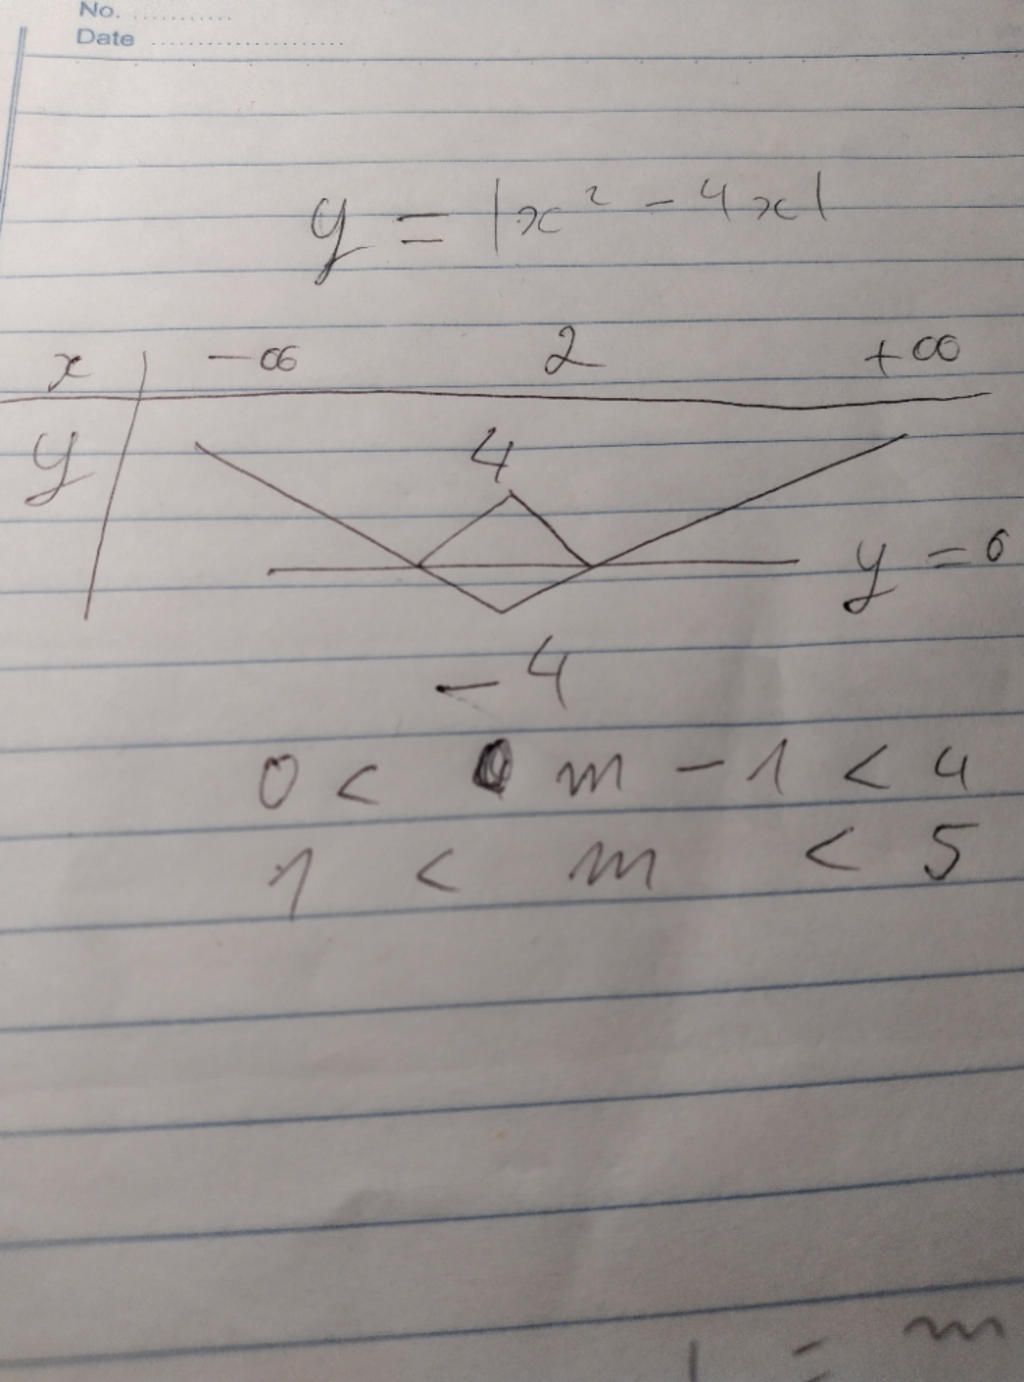 No. ............
Date ......................
y = |x² - 4x|
x -∞ 2 +∞
y 4
y = 0
-4
0 < m - 1 < 4
1 < m < 5
= m